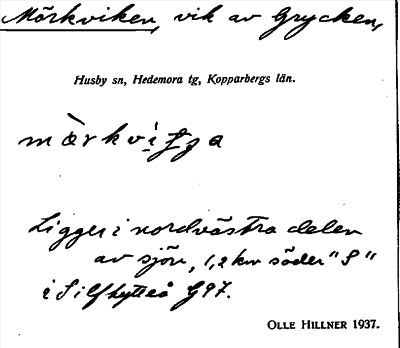 Mörkviken, vik av Grycken,
Husby sn, Hedemora tg, Kopparbergs län.
Ligger i nordvästra delen
av sjön, 1,2 km söder "S"
i Silfhytteå G97.
OLLE HILLNER 1937.